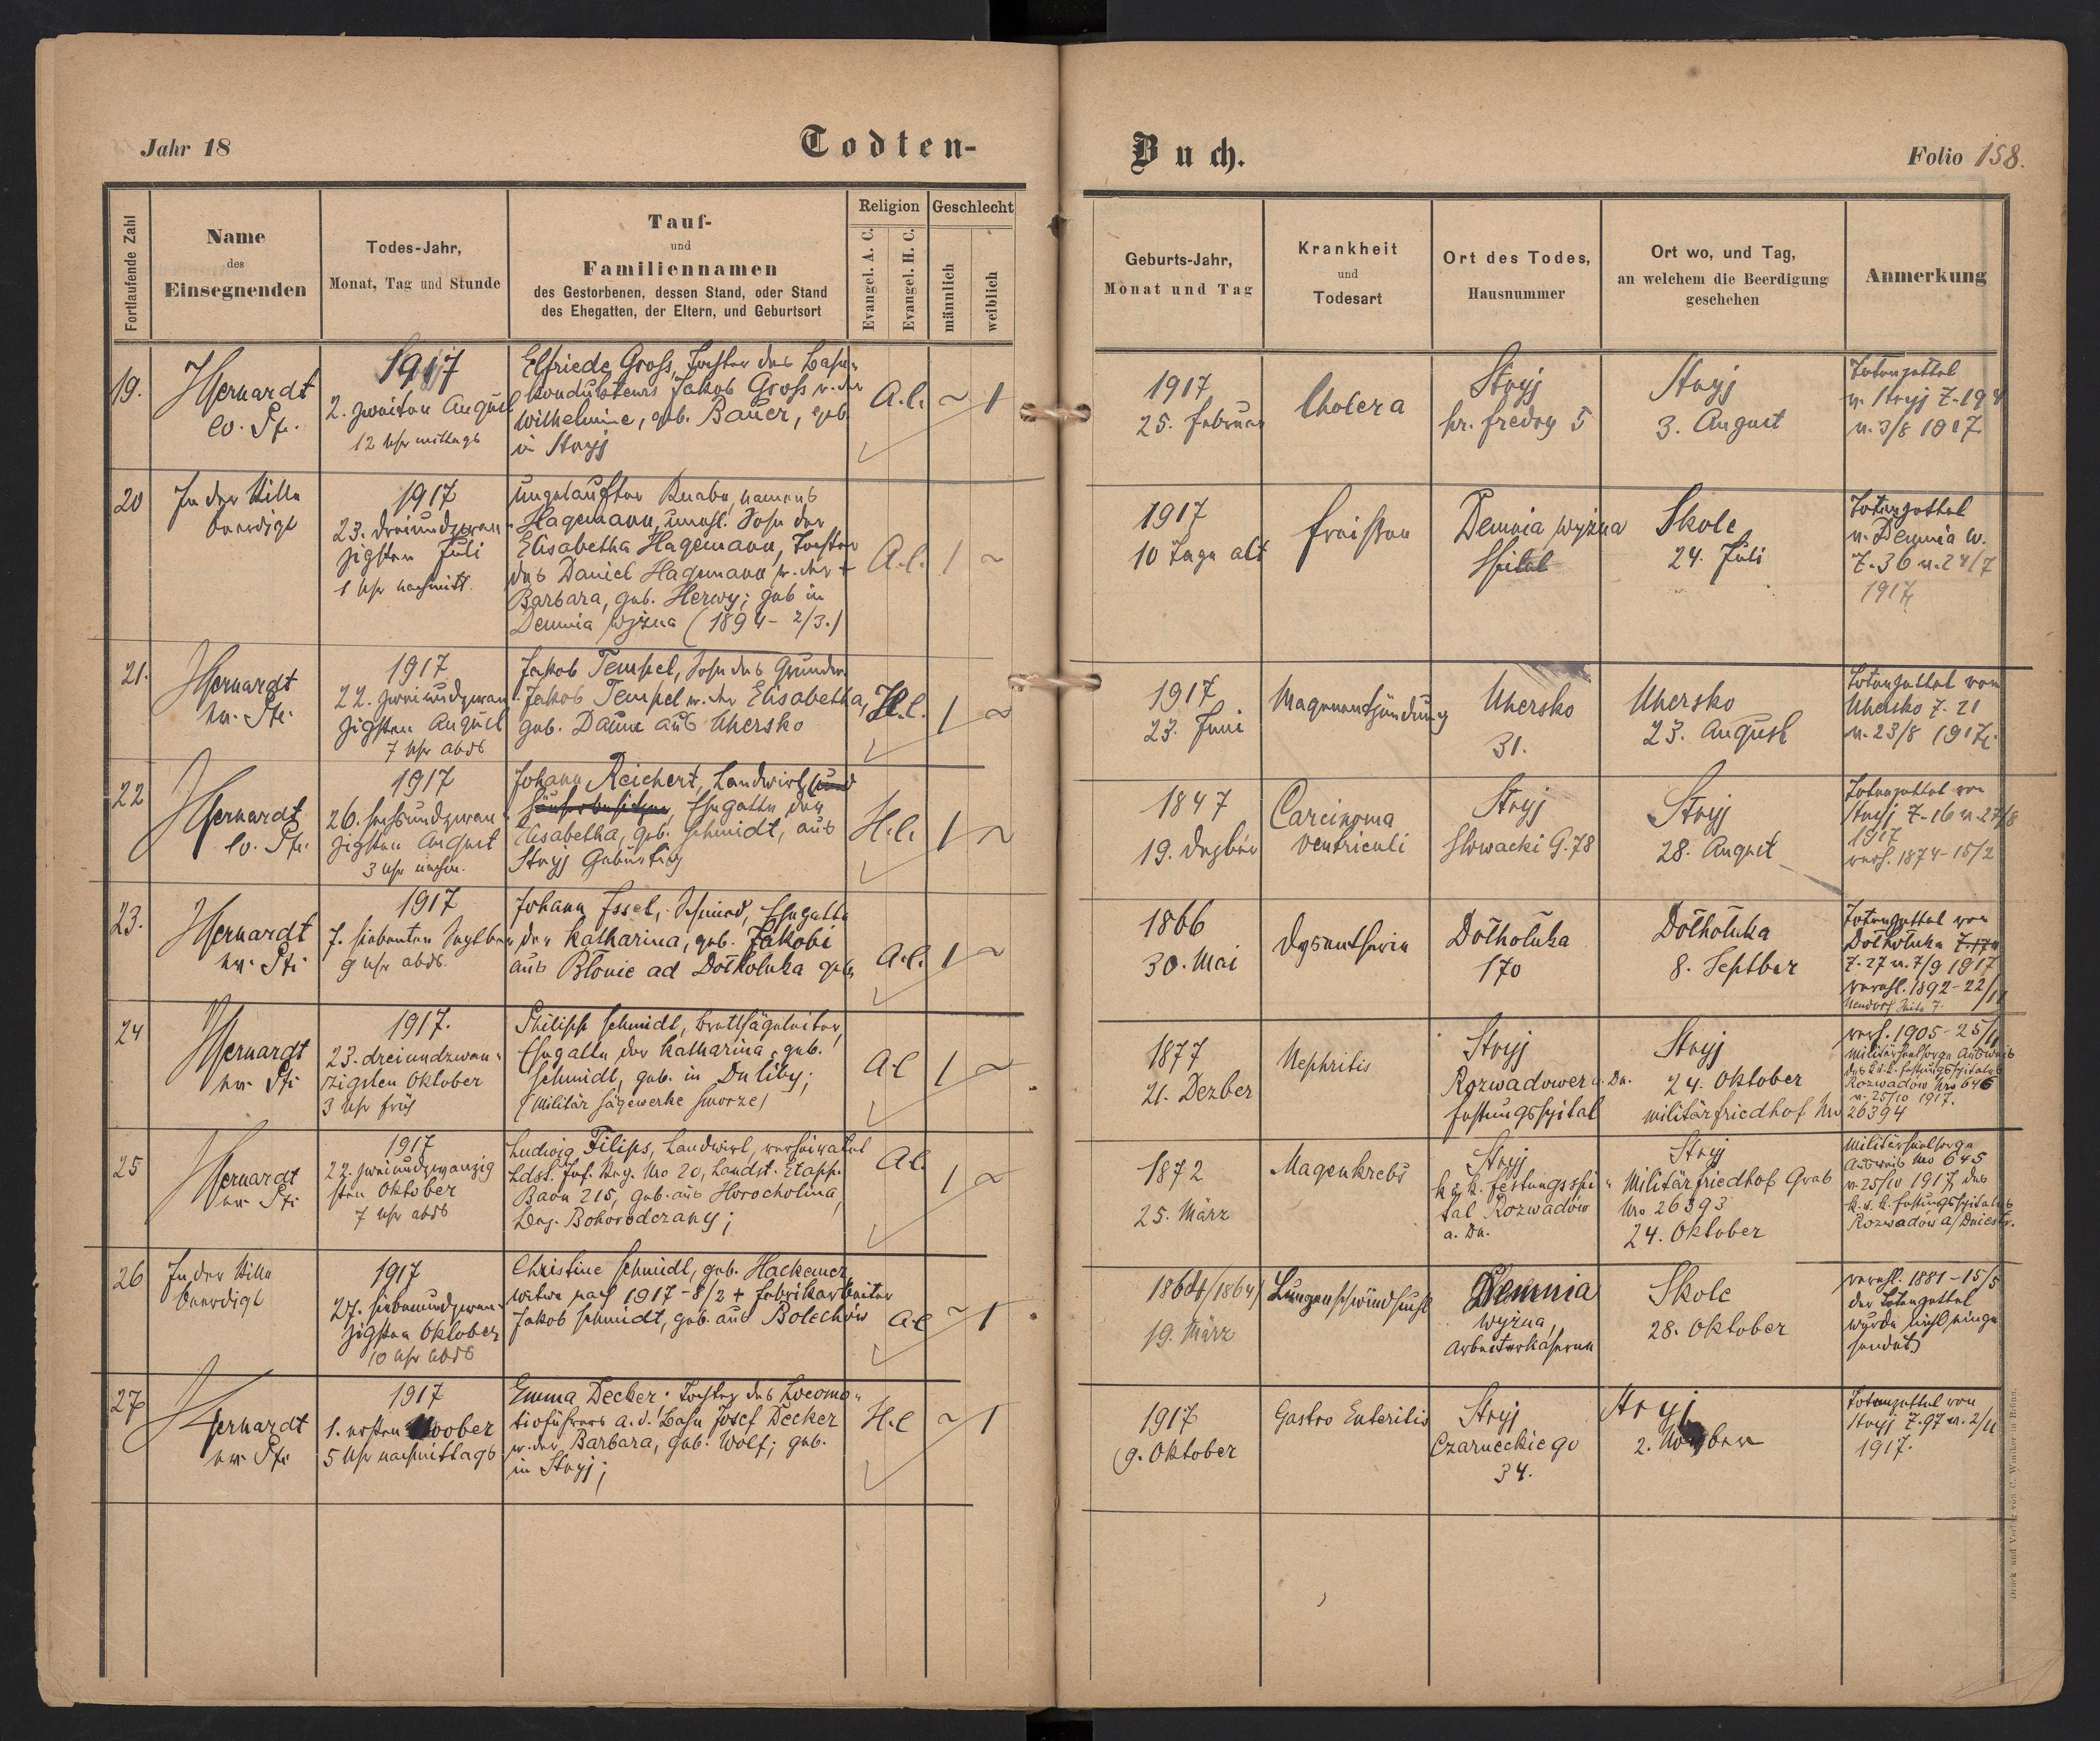 Jahr 18
Todten-
Buch.
Folio 158.
Fortlaufende Zahl
Name
des
Einsegnenden
Todes-Jahr,
Monat, Tag und Stunde
Tauf-
und
Familiennamen
des Gestorbenen, dessen Stand, oder Stand
des Ehegatten, der Eltern, und Geburtsort
Religion
Evangel. A. C.
Evangel. H. C.
Geschlecht
männlich
weiblich
Geburts-Jahr,
Monat und Tag
Krankheit
und
Todesart
Ort des Todes,
Hausnummer
Ort wo, und Tag,
an welchem die Beerdigung
geschehen
Anmerkung
19.
ev. Pfr.
1917
2. zweiten August
12 Uhr mittags
Elfriede Gross, Tochter des Bahn-
kondukteurs Jakob Gross u. der
Wilhelmine, geb. Bauer, geb.
in Stryj
A.C.
~ 1
1917
25. Februar
Cholera
Stryj
Fredry 5
Stryj
3. August
Totenzettel
v. Stryj Z. 194
v. 3/8 1917
20
In der Stille
beerdigt
1917
23. dreiundzwan-
zigsten Juli
1 Uhr nachmitt.
Ungetaufter Knabe, namens
Hagemann, unehl. Sohn der
Elisabetha Hagemann, Tochter
des Daniel Hagemann u. der +
Barbara, geb. Herwy; geb in
Demnia wyżna (1894 - 2/3.)
A.C.
1 ~
1917
10 Tage alt
Fraisen
Demnia wyżna
Spital
Skole
24. Juli
Totenzettel
v. Demnia w.
Z. 36 v. 24/7
1917
21.
1917
22. zweiundzwan-
zigsten August
7 Uhr abds
Jakob Tempel, Sohn des Grundw.
Jakob Tempel u. der Elisabetha,
geb. Daum aus Uhersko
H.C.
1 ~
1917
23. Juni
Magenentzündung
Uhersko
31.
Uhersko
23. August
Totenzettel von
Uhersko Z. 21
v. 23/8 1917
22
ev. Pfr.
1917
26. sechsundzwan-
zigsten August
3 Uhr nachm.
Johann Reichert, Landwirt und
Hausbesitzer, Ehegatte der
Elisabetha, geb. Schmidt, aus
Stryj Gebürtig
H.C.
1 ~
1847
19. Dezbêr
Carcinoma
ventriculi
Stryj
Slowacki G. 78
Stryj
28. August
Totenzettel von
Stryj Z. 16 v. 27/8
1917
verh. 1874 - 15/2
23.
1917
7. siebenten Septber
9 Uhr abds.
Johann Issel, Schmied, Ehegatte
der Katharina, geb. Jakobi
aus Błonie ad Dołhołuka geb.
A.C.
1 ~
1866
30. Mai
Dysentherie
Dołhołuka
170
Dołhołuka
8. Septber
Totenzettel von
Dołhołuka
Z. 27 v. 7/9 1917
verehl. 1892 - 22/11
Neudorf Seite 7.
24
1917.
23. dreiundzwan-
zigsten Oktober
3 Uhr früh
Philipp Schmidt, Brettsägeleiter,
Ehegatte der Katharina, geb.
Schmidt, geb. in Duliby;
(Militär Sägewerke Smorze)
A.C
1 ~
1877
21. Dezber
Nephritis
Stryj
Rozwadower a. Dn.
Festungsspital
Stryj
24. Oktober
Militärfriedhof Nro
26394
verh. 1905 - 25/11
Militärseelsorge Ausweis
des k.u.k. Festungsspitales
Rozwadow Nro 646
v. 25/10 1917.
25
1917
22. zweiundzwanzig
sten Oktober
7 Uhr abds
Ludwig Filips, Landwirt, verheiratet
Ldst. Inf. Reg. Nro 20, Landst. Etapp.
Baon 215, geb. aus Horocholina,
Bez. Bohorodczany;
A.C.
1 ~
1872
25. März
Magenkrebs
Stryj
k. u. k. Festungsspi-
tal Rozwadów
a. Dn.
Stryj
Militärfriedhof Grab
Nro 26393
24. Oktober
Militärseelsorge
Ausweis Nro 645
v. 25/10 1917 des
k. u. k. Festungsspitales
Rozwadów a/Dniestr.
26
In der Stille
beerdigt
1917
27. siebenundzwan-
zigsten Oktober
10 Uhr abds
Christine Schmidt, geb. Hackemer
Witwe nach 1917 - 8/2 + Fabrikarbeiter
Jakob Schmidt, geb. aus Bolechów
A.C
~ 1
1864 (1864)
19. März
Lungenschwindsucht
Demnia
wyżna,
Arbeiterkaserne
Skole
28. Oktober
verehl. 1881 - 15/5
der Totenzettel
wurde nicht einge
sendet)
27
Gerhardt
1917
1. ersten
5 Uhr nachmittags
Emma Decker. Tochter des Locomo-
tivführers a. d. Bahn Josef Decker
u. der Barbara, geb. Wolf; geb.
in Stryj;
H.C
~ 1
1917
9. Oktober
Gastro Enteritis
Stryj
Czarneckiego
34.
Stryj
2. Novber
Totenzettel von
Stryj Z. 97 v. 2/11
1917.
Druck und Verlag von C. Winiker in Brünn.